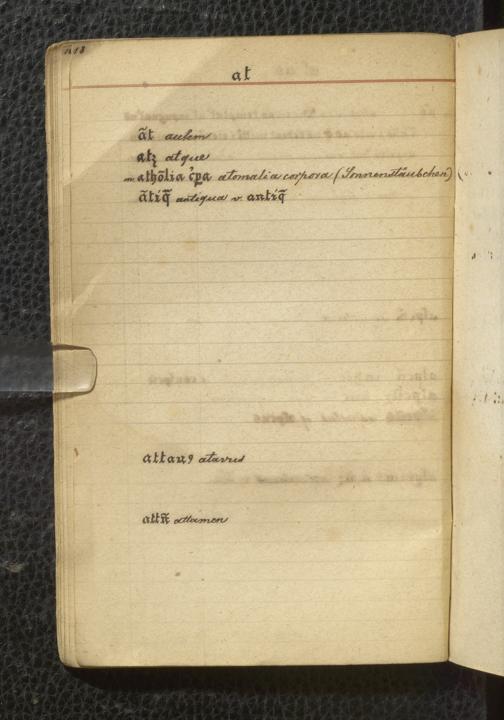 at
āt autem
atꝫ atque
athōlia c̓pa atomalia corpora (Sonnenstäubchen)
ātiq̄ antiqua v. antiq̄
attauꝯ atavus
attn̄ attamen